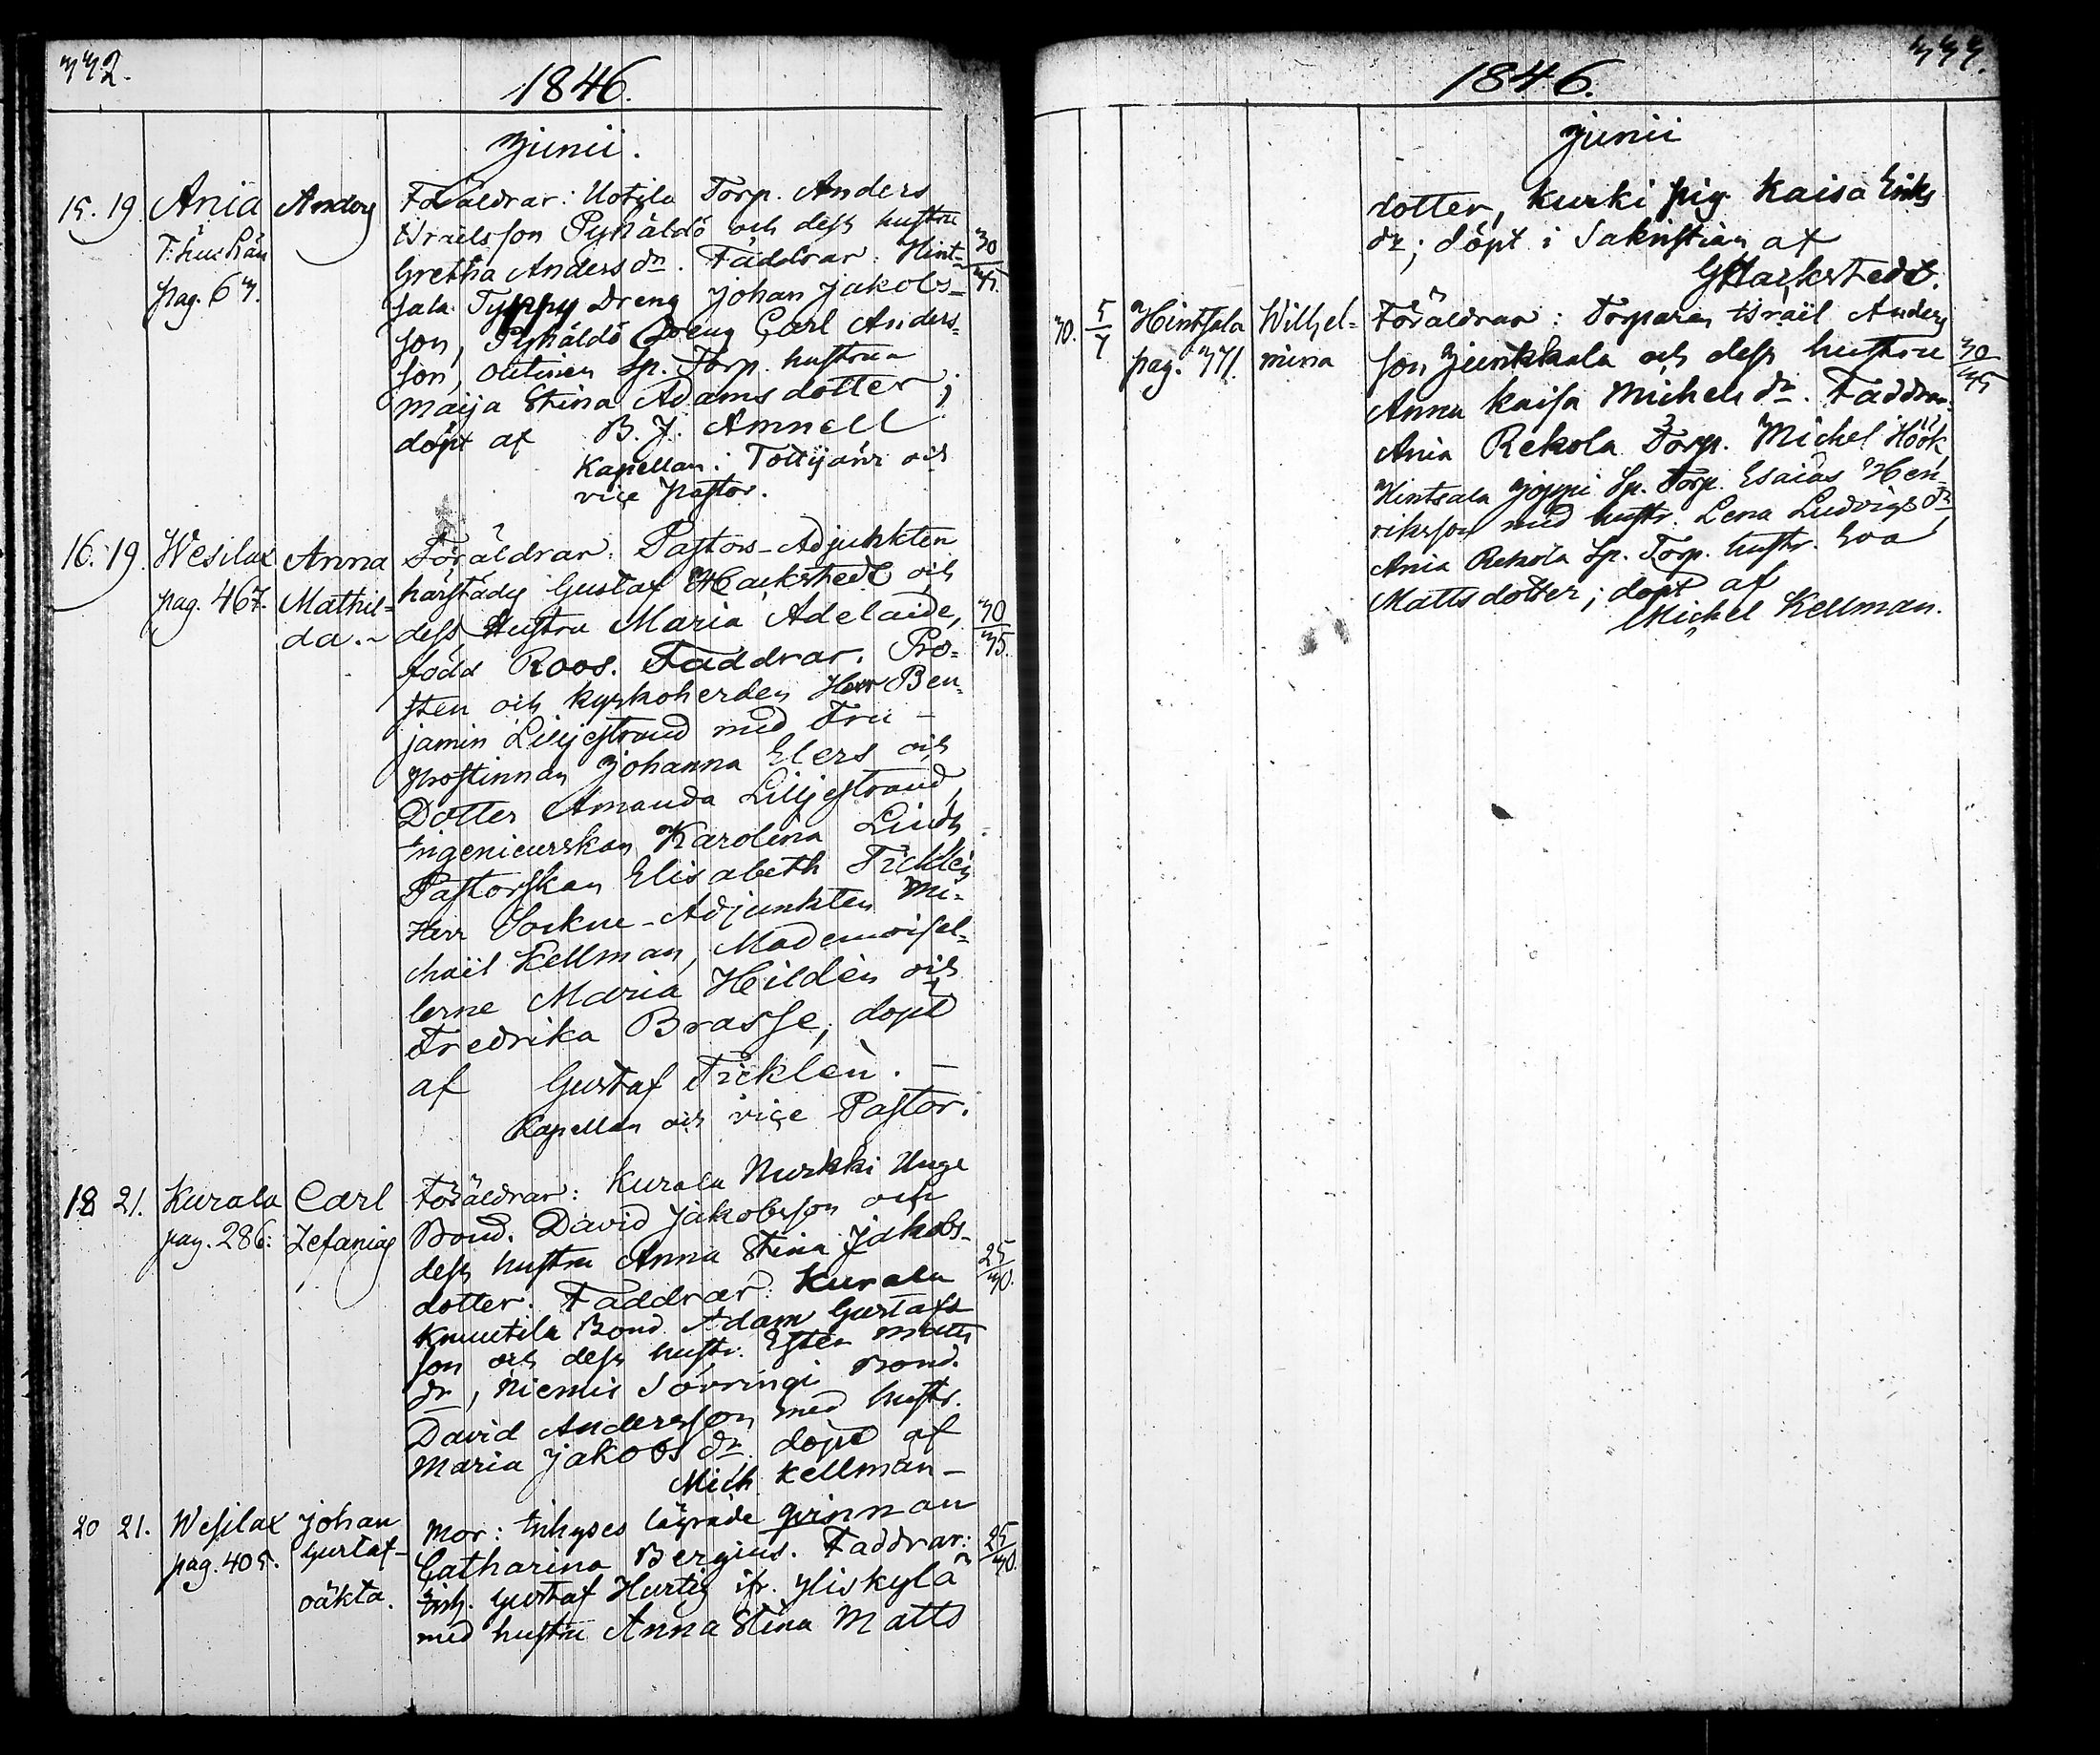 332.
1846.
Junii.
15. 19. Ania Anders Föräldrar: Uotila Torp. Anders
T. huslän Israelsson Pyhäldö och dess hustru
pag. 63. Gretha Anders dr. Faddrar: Hint- 30/35.
sala Typpy Dreng Johan Jakobs-
son, Pyhäldö Dreng Carl Anders-
son, Outinen Sp. Torp. hustrun
Maija Stina Adamsdotter;
döpt af B. J. Amnell
Kapellan i Tottijärvi och
vice Pastor.
16. 19. Wesilax Anna Föräldrar: Pastors-Adjunkten
pag. 467. Mathil- härstädes Gustaf Hackstedt och
da. dess Hustru Maria Adelaide, 30/35.
född Roos. Faddrar: Pro-
sten och kyrkoherden Herr Ben-
jamin Liljestrand med Fru
Prostinnan Johanna Elers och
Dotter Amanda Liljestrand,
Ingenieurskan Karolina Lindh
Pastorskan Elisabeth Ticklén
Herr Sockne-Adjunkten Mi-
chaël Kellman, Mademoisel-
lerne Maria Hildén och
Fredrika Brasse; döpt
af Gustaf Ticklén.
Kapellan och vice Pastor.
18 21. Kurala Carl Föräldrar: Kurala Nurkki Unge
pag. 286. Zefanias Bond. David Jakobsson och
dess hustru Anna Stina Jakobs- 25/30.
dotter. Faddrar: Kurala
Knuutila Bond. Adam Gustafs
son och dess hustr. Ester Matts
dr, Niemis Sörringi Bond.
David Andersson med hustr.
Maria Jakobs dr. döpt af
Mich. Kellman
20 21. Wesilax Johan Mor: Inhyses lägrade qvinnan
pag. 405. Gustaf Catharina Bergius. Faddrar: 25/30.
oäkta. Inh. Gustaf Hurtig ifr. Yliskylä
med hustru Anna Stina Matts
333.
1846.
Junii
dotter, Kurki pig. Kaisa Eriks
dr; döpt i Sakristian af
G Hackstedt.
30. 5/7 Hintsala Wilhel- Föräldrar: Torparen Israël Anders
pag. 371. mina son Junkkala och dess hustru 30/35
Anna Kaisa Michels dr. Faddrar:
Ania Rekola Torp. Michel Höök,
Hintsala Joppi Sp. Torp. Esaias Hen-
riksson med hustr. Lena Ludvigs dr,
Ania Rekola Sp. Torp. hustr. Eva
Mattsdotter; döpt af
Michel Kellman.